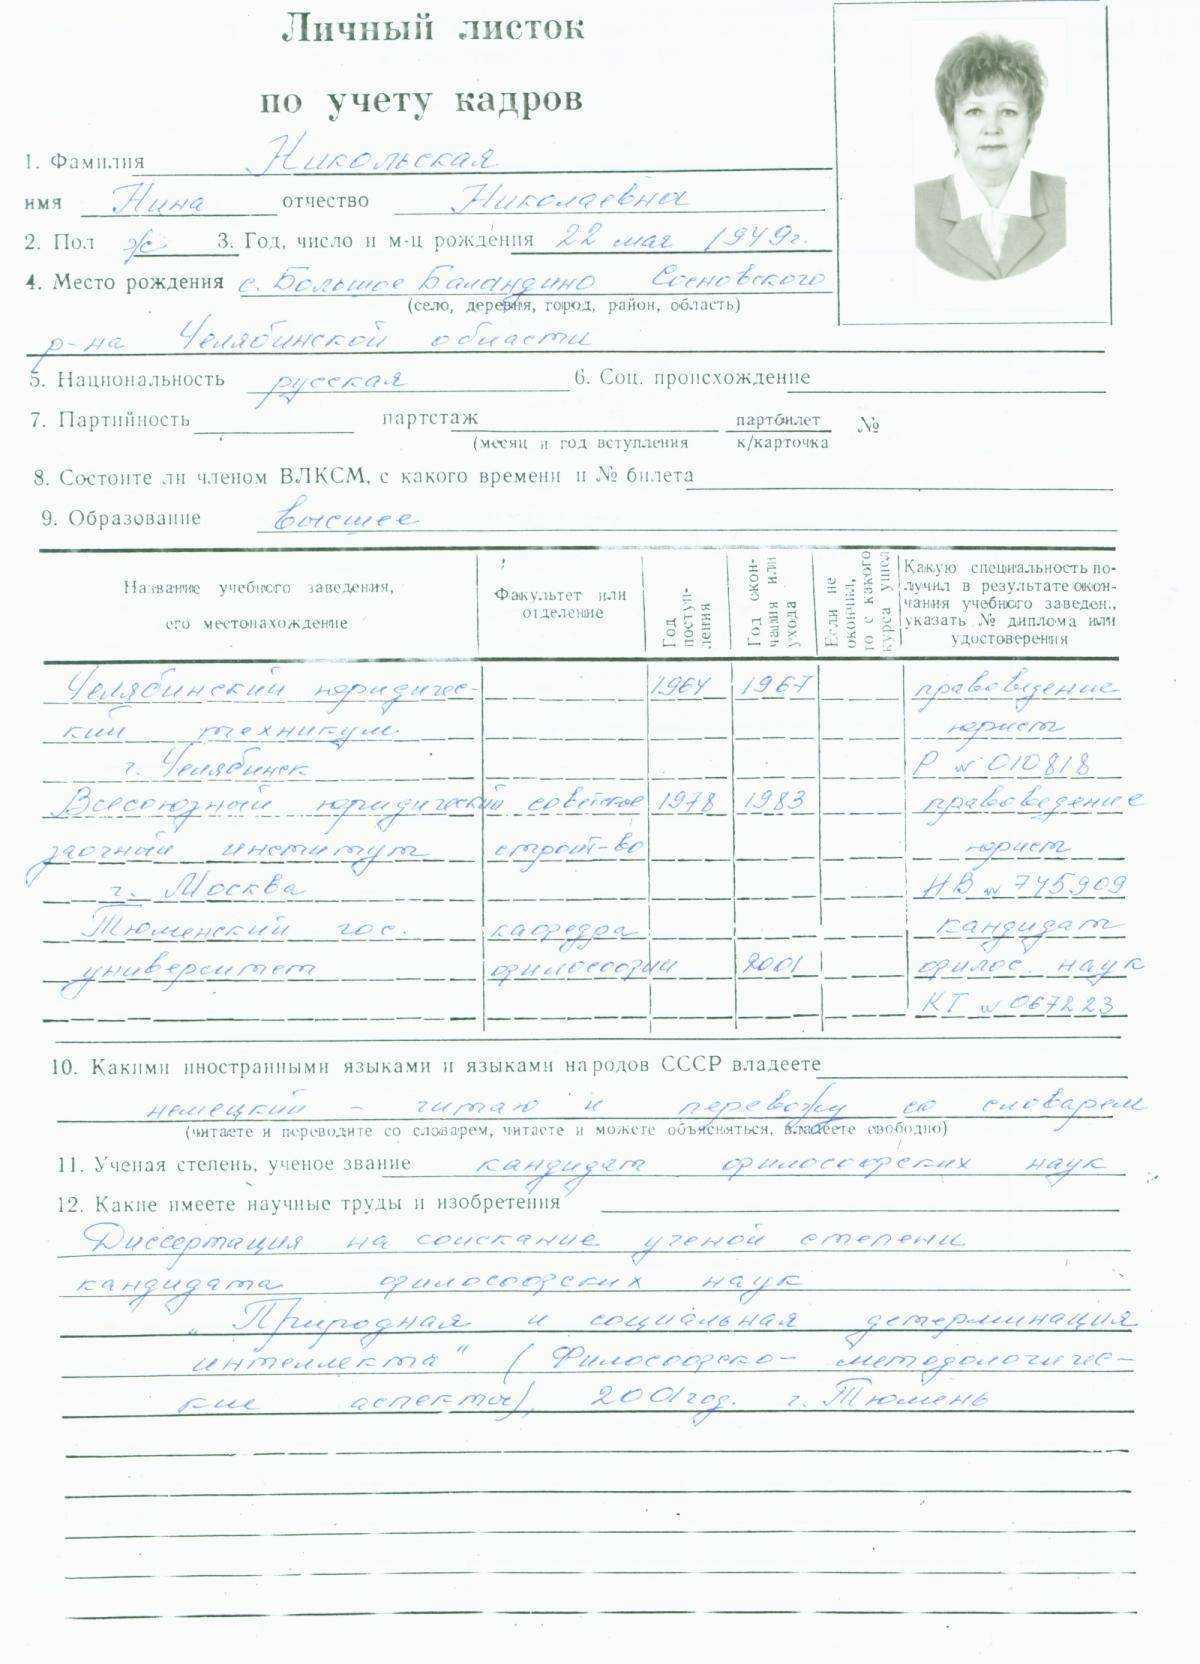 Личный листок
по учету кадров
1. Фамилия Никольская
имя Нина отчество Николаевна
2. Пол ж 3. Год, число и м-ц рождения 22 мая 1949г.
4. Место рождения с. Большое Баландино Сосновского
(село, деревня, город, район, область)
р-на Челябинской области
5. Национальность русская 6. Соц. происхождение
7. Партийность партстаж партбилет №
(месяц и год вступления к/карточка
8. Состоите ли членом ВЛКСМ, с какого времени и № билета
9. Образование высшее
Название учебного заведения,
его местонахождение
Факультет или
отделение
Год
поступ-
ления
Год окон-
чания или
ухода
Если не
окончил,
то с какого
курса ушел
Какую специальность по-
лучил в результате окон-
чания учебного заведен.,
указать № диплома или
удостоверения
Челябинский юридичес- 1964 1967 правоведение
кий техникум юрист
г. Челябинск Р № 010818
Всесоюзный юридический советское 1978 1983 правоведение
заочный институт строит-во юрист
г. Москва НВ № 745909
Тюменский гос. кафедра кандидат
университет философии 2001 филос. наук
КТ № 067223
10. Какими иностранными языками и языками народов СССР владеете
немецкий - читаю и перевожу со словарем
(читаете и переводите со словарем, читаете и можете объясняться, владеете свободно)
11. Ученая степень, ученое звание кандидат философских наук
12. Какие имеете научные труды и изобретения
Диссертация на соискание ученой степени
кандидата философских наук
„Природная и социальная детерминация
интеллекта" (Философско- методологичес-
кие аспекты), 2001год. г. Тюмень